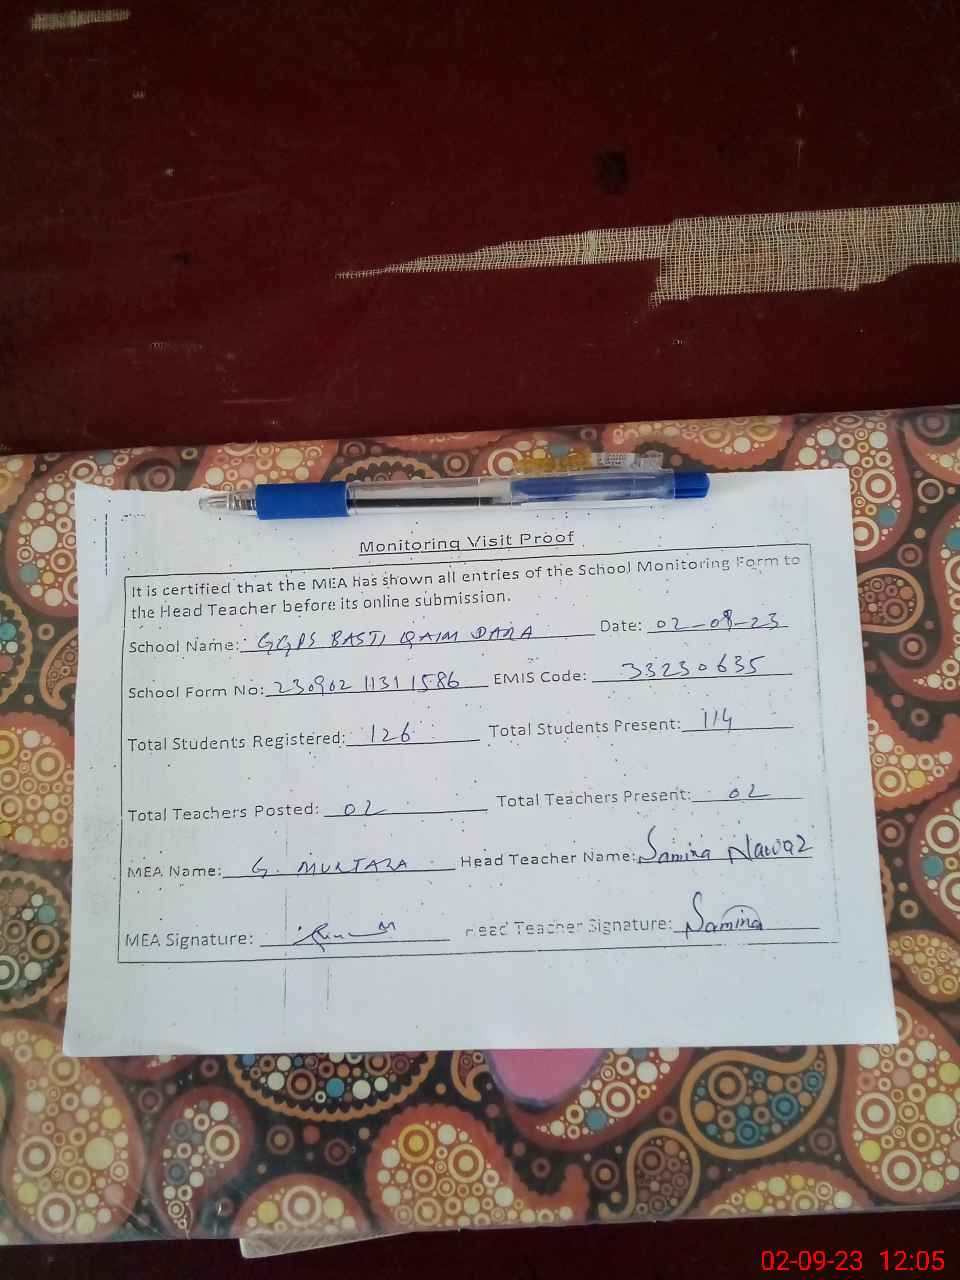 Monitoring Visit Proof
It is certified that the MEA has shown all entries of the School Monitoring Form to
the Head Teacher before its online submission.
School Name: GGPS BASTI QAIM DARA Date: 02-09-23
School Form No: 230902 1131 1586 EMIS Code: 33230635
Total Students Registered: 126 Total Students Present: 114
Total Teachers Posted: 02 Total Teachers Present: 02
MEA Name: G. MURTAZA Head Teacher Name: Samina Nawaz
MEA Signature: Head Teacher Signature: Samina
02-09-23 12:05